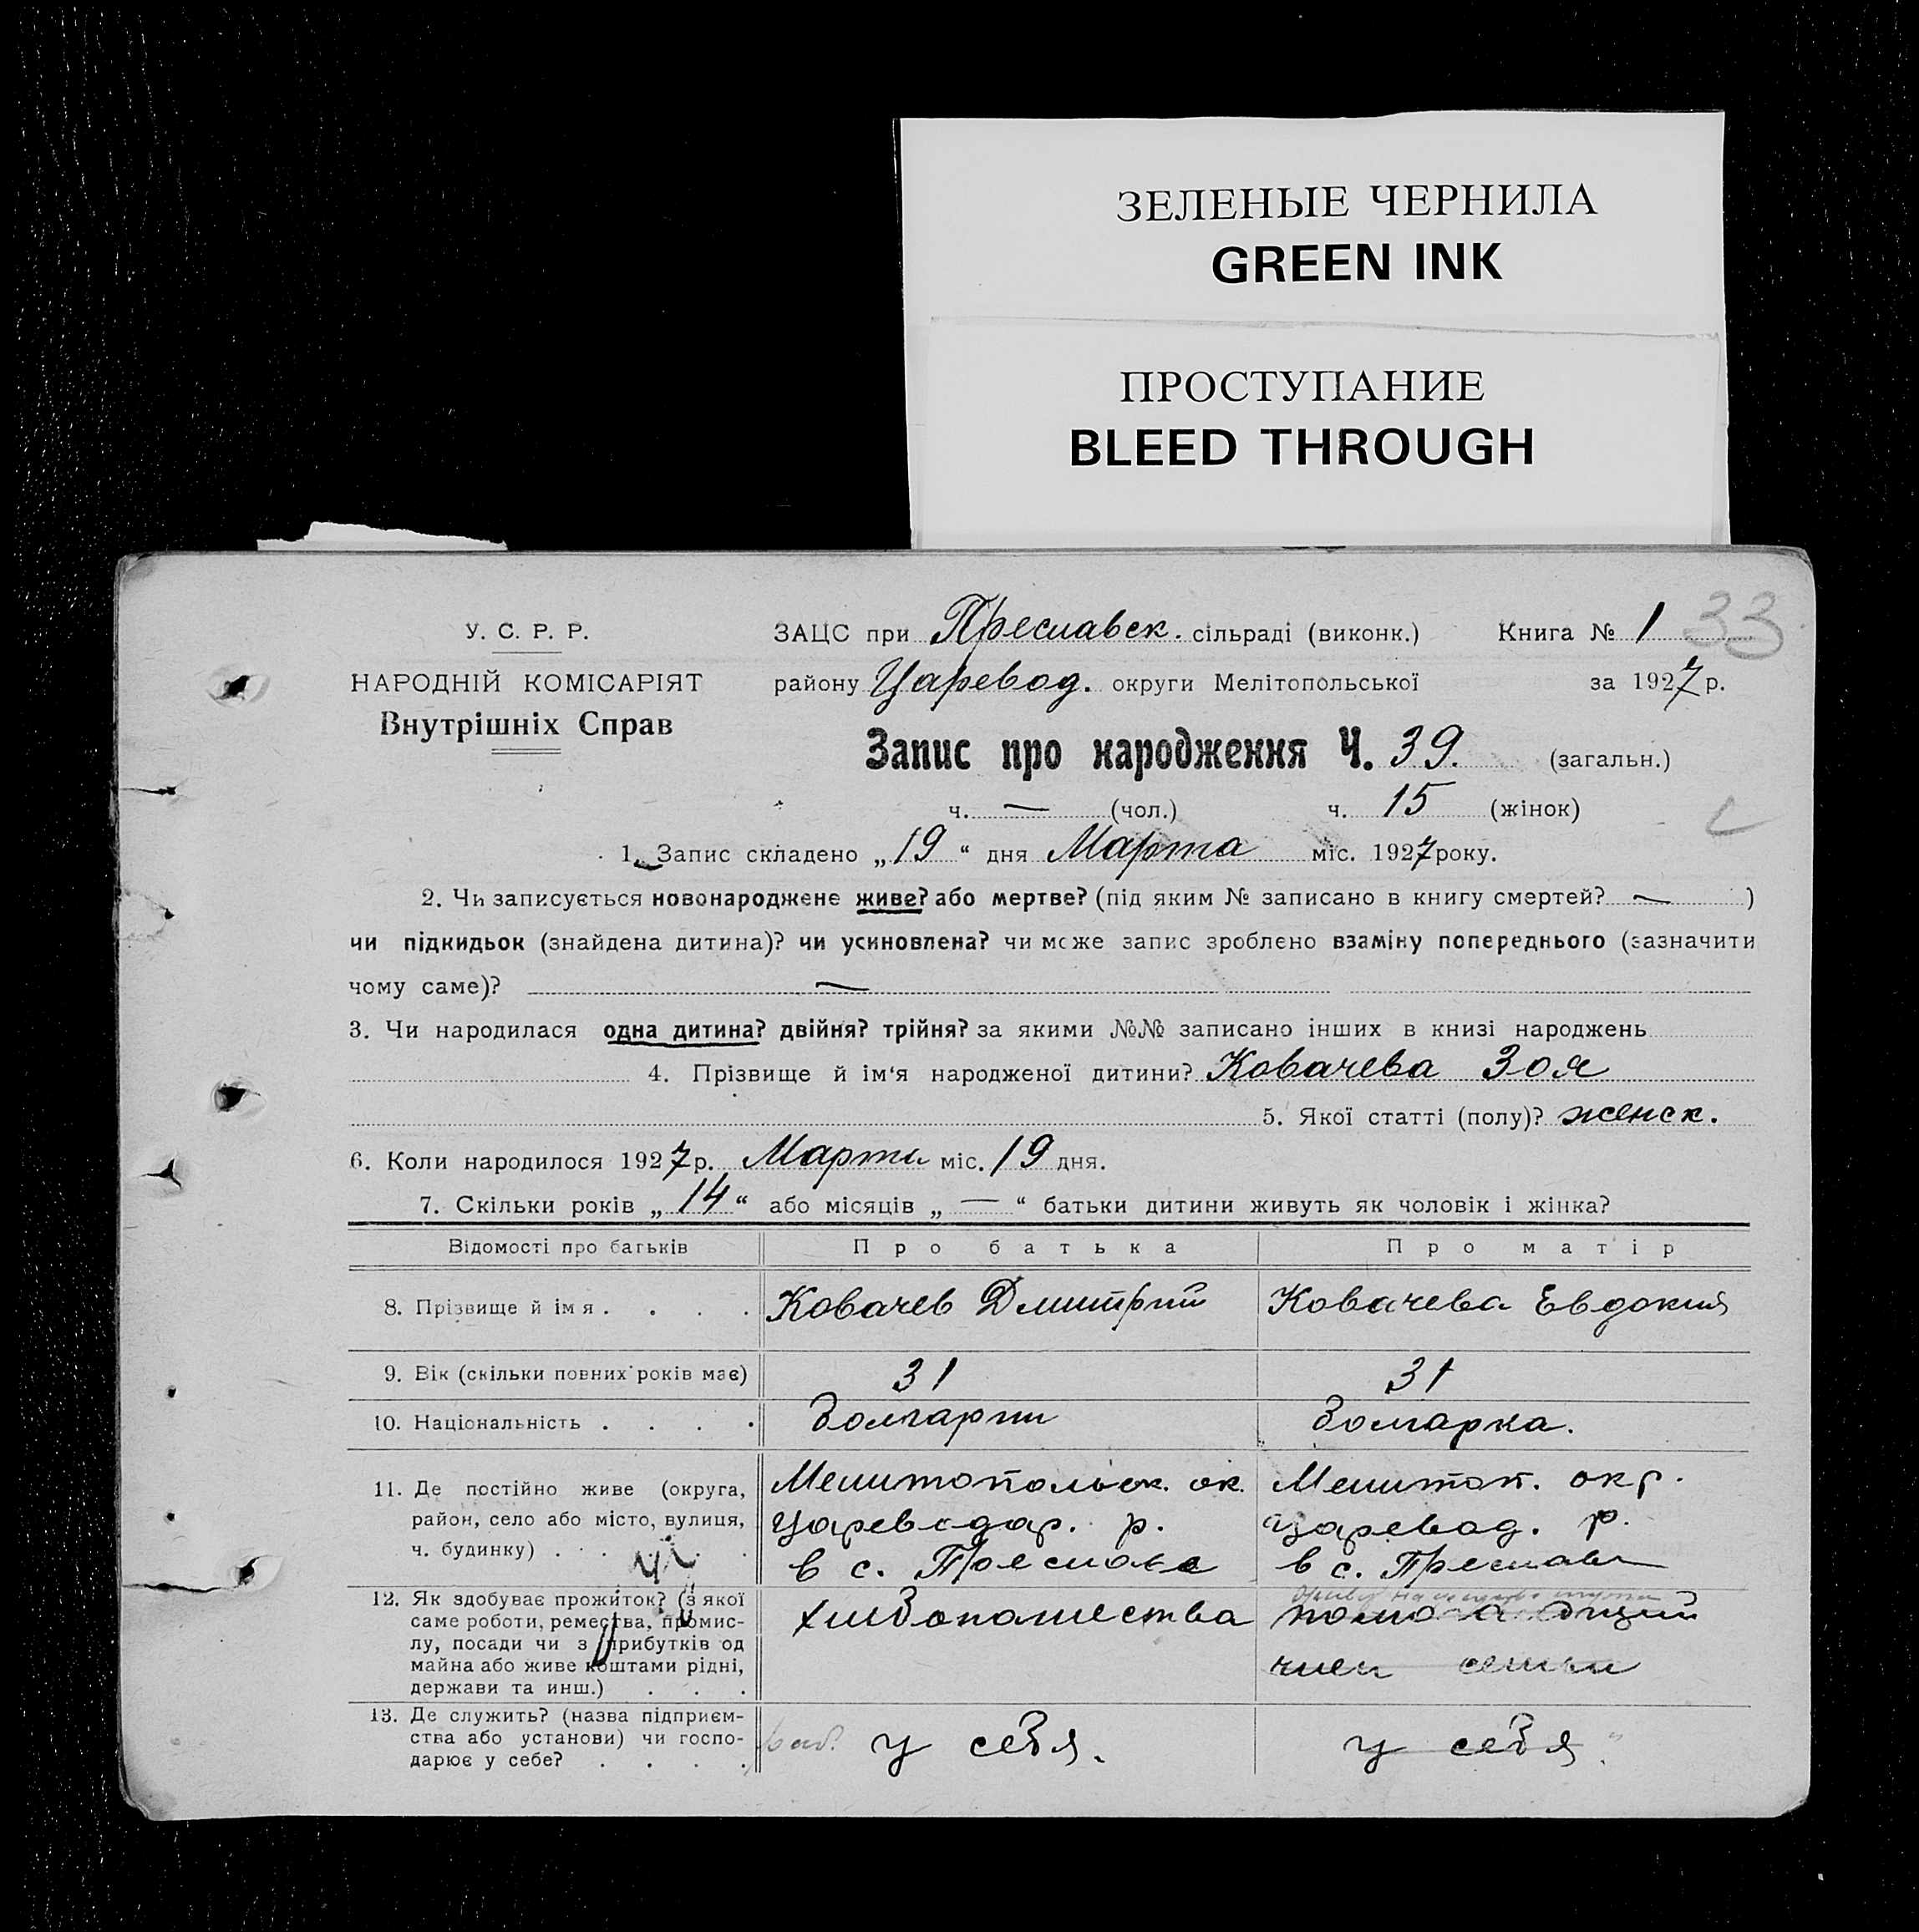 ЗЕЛЕНЫЕ ЧЕРНИЛА
GREEN INK
ПРОСТУПАНИЕ
BLEED THROUGH
33
У. С. Р. Р.
НАРОДНІЙ КОМІСАРІЯТ
Внутрішніх Справ
ЗАЦС при Преславск. сільраді (виконк.) Книга № 1
району Царевод. округи Мелітопольської за 1927 р.
Запис про народження Ч. 39. (загальн.)
ч. — (чол.) ч. 15 (жінок)
1. Запис складено „19“ дня Марта міс. 1927 року.
2. Чи записується новонароджене живе? або мертве? (під яким № записано в книгу смертей? — )
чи підкидьок (знайдена дитина)? чи усиновлена? чи може запис зроблено взаміну попереднього (зазначити
чому саме)? —
3. Чи народилася одна дитина? двійня? трійня? за якими №№ записано інших в книзі народжень
4. Прізвище й ім‘я народженої дитини? Ковачева Зоя
5. Якої статті (полу)? женск.
6. Коли народилося 1927 р. Марта міс. 19 дня.
7. Скільки років „14“ або місяців „—“ батьки дитини живуть як чоловік і жінка?
Відомості про батьків Про батька Про матір
8. Прізвище й імя . . . . Ковачев Дмитрий Ковачева Евдокия
9. Вік (скільки повних років має) 31 31
10. Національність . . . . болгарин болгарка.
11. Де постійно живе (округа,
район, село або місто, вулиця,
ч. будинку) . . . .
Мелитопольск. ок.
Цареводар. р.
в с. Преслава
Мелитоп. окр.
Царевод. р.
в с. Преслав
12. Як здобуває прожиток? (з якої
саме роботи, ремества, промис-
лу, посади чи з прибутків од
майна або живе коштами рідні,
держави та инш.) . . .
хлибопашества
помогающий
член семьи
13. Де служить? (назва підприєм-
ства або установи) чи госпо-
дарює у себе? . . . .
у себя.
у себя.